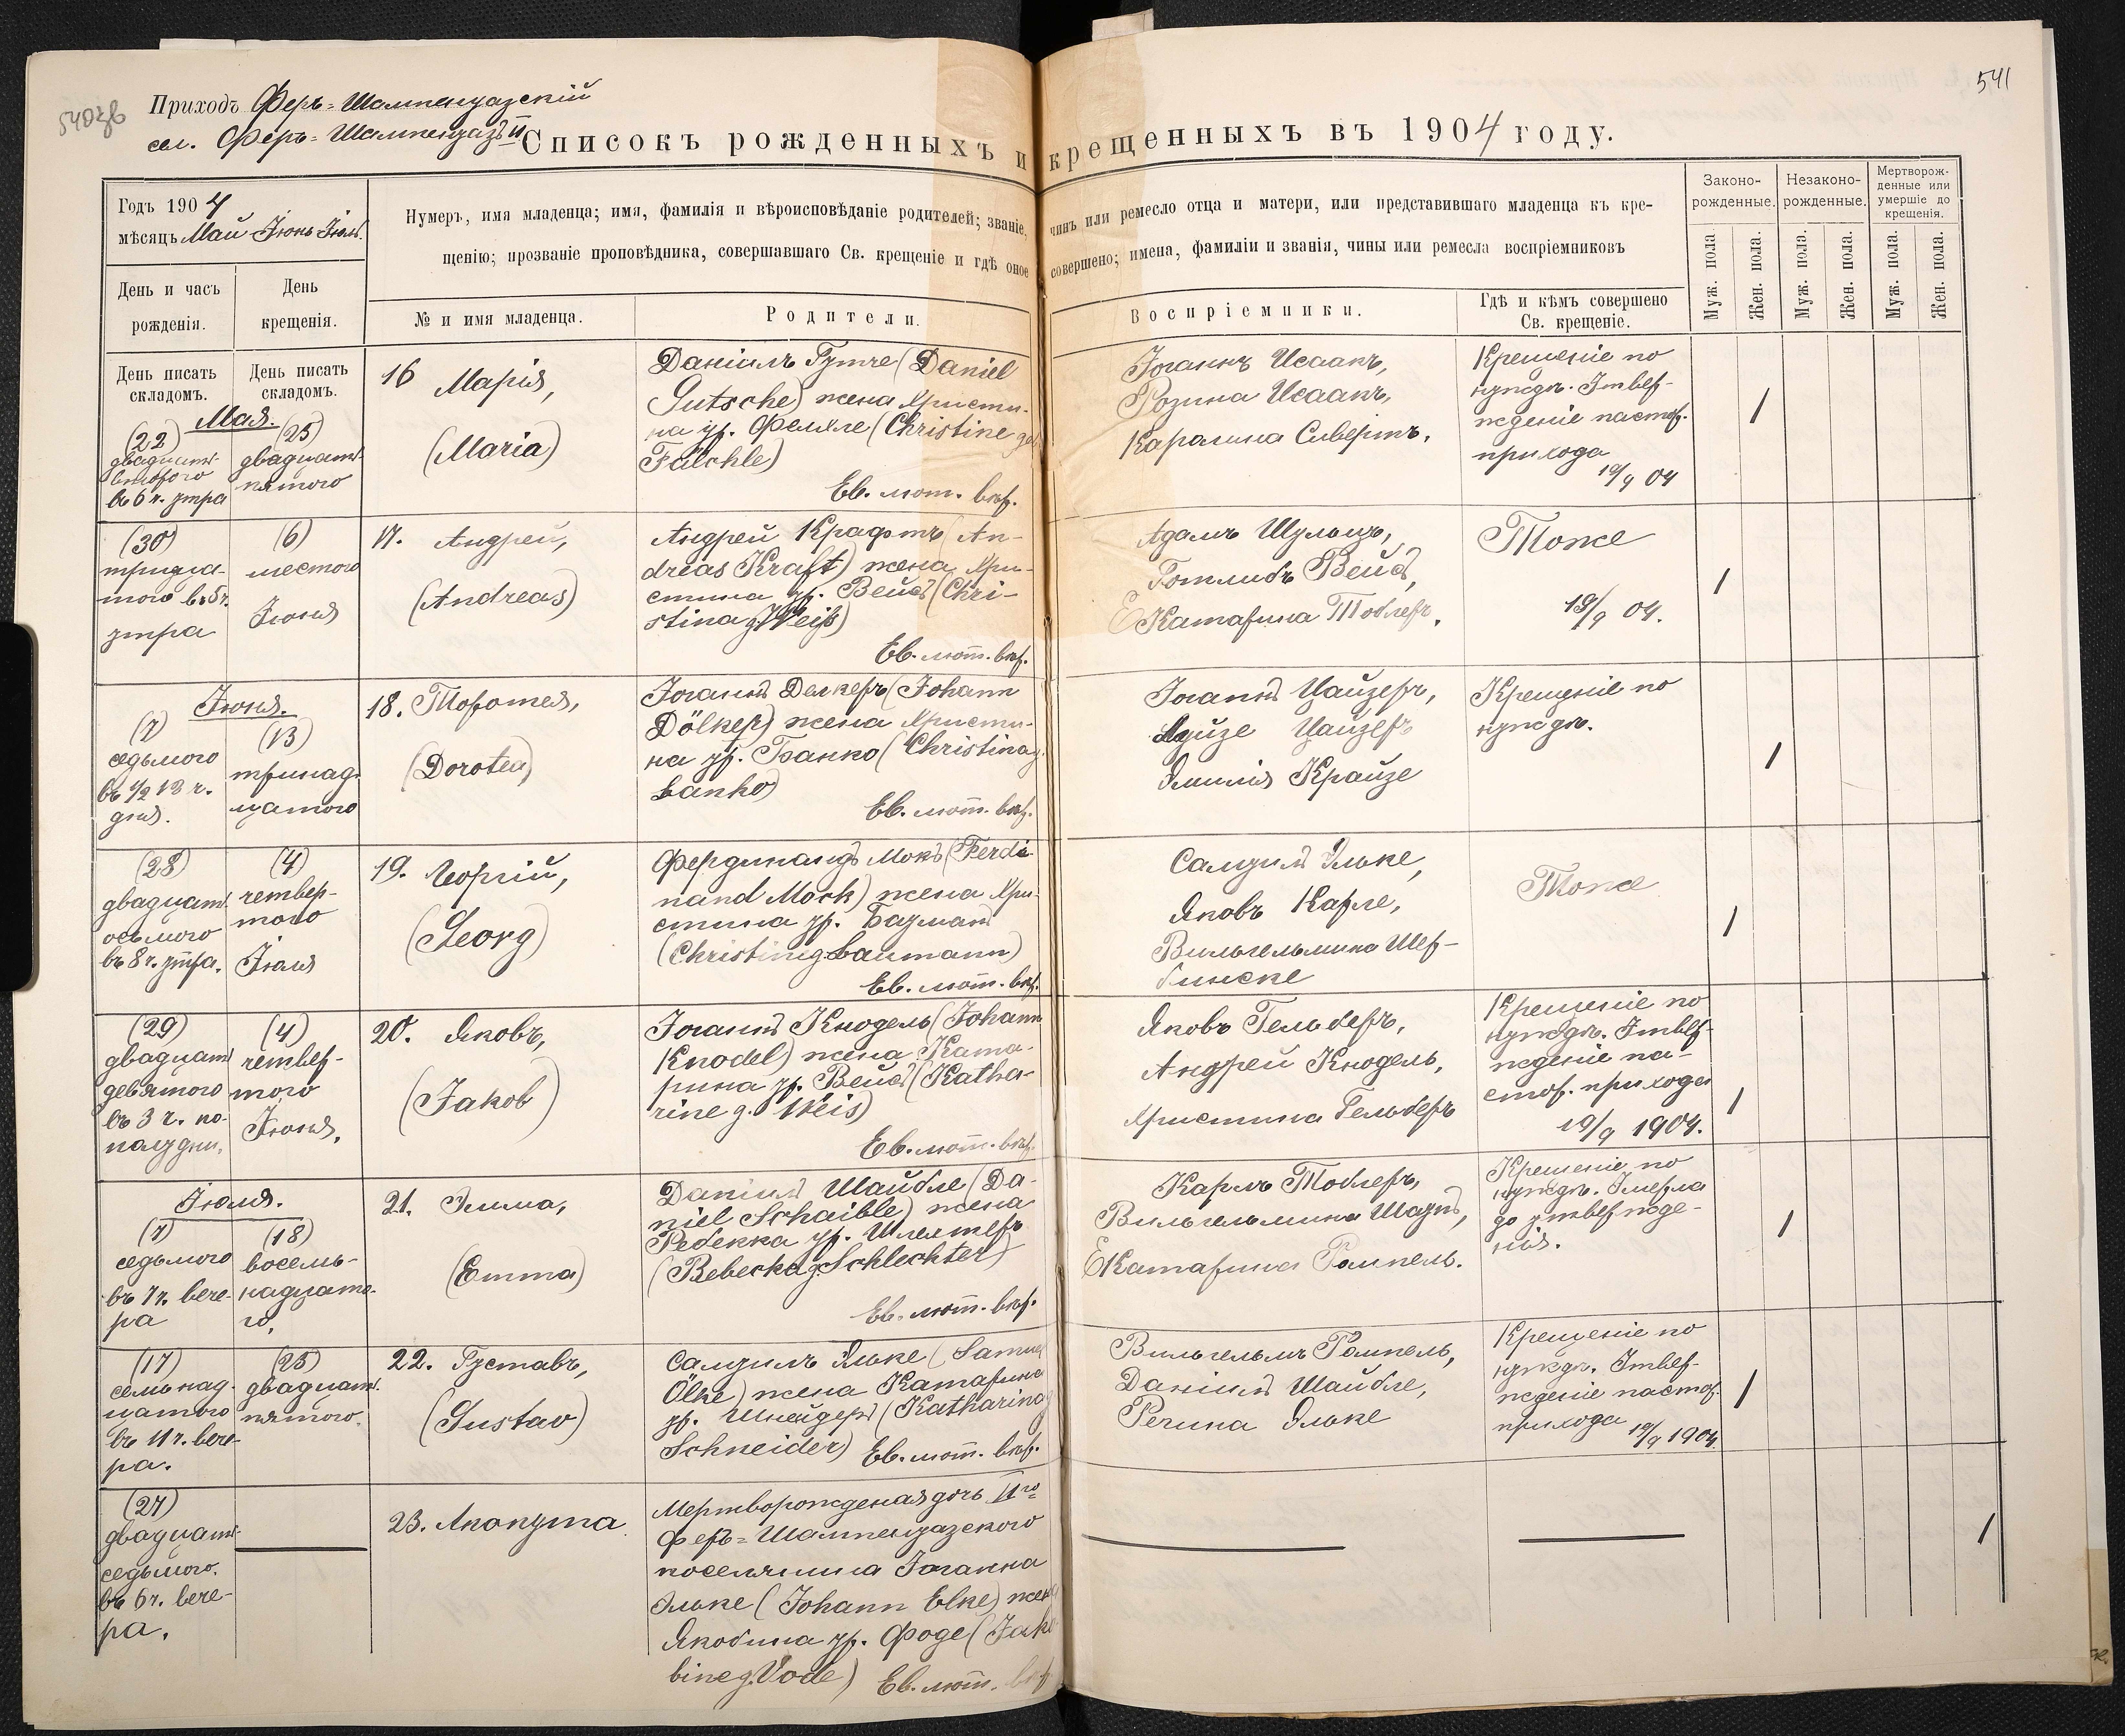 540об
Приходъ Феръ-Шампенуазскій
сел. Феръ-Шампенуазъ II
541
Списокъ рожденныхъ и крещенныхъ въ 1904 году.
Годъ 1904
мѣсяцъ Май Іюнь Іюль.
День и часъ
рожденія.
День
крещенія.
Нумеръ, имя младенца; имя, фамилія и вѣроисповѣданіе родителей; званіе, чинъ или ремесло отца и матери, или представившаго младенца къ кре-
щенію; прозваніе проповѣдника, совершавшаго Св. крещеніе и гдѣ оное совершено; имена, фамиліи и званія, чины или ремесла воспріемниковъ
№ и имя младенца.
Родители.
Воспріемники.
Гдѣ и кѣмъ совершено
Св. крещеніе.
Законо-
рожденные.
Незаконо-
рожденные.
Мертворож-
денные или
умершіе до
крещенія.
Муж. пола
Жен. пола.
Муж. пола.
Жен. пола.
Муж. пола.
Жен. пола.
День писать
складомъ.
День писать
складомъ.
Мая.
(22)
двадцать
второго
въ 6 ч. утра
(25)
двадцать
пятого
16 Марія,
(Maria)
Даніилъ Гутче (Daniel
Gutsche) жена Христи-
на ур. Фелхле (Christine g.
Fälchle)
Ев. лют. вѣр.
Іоганнъ Исаакъ,
Розина Исаакъ,
Каролина Сивертъ.
Крещеніе по
нуждѣ. Утвер-
жденіе пастор.
прихода
19/9 04
1
(30)
тридца-
того въ 5 ч.
утра
(6)
шестого
Іюня
17. Андрей,
(Andreas)
Андрей Крафтъ (An-
dreas Kraft) жена Хри-
стина ур. Вейсъ (Chri-
stina g. Weiß)
Ев. лют. вѣр.
Адамъ Шульцъ,
Готлибъ Вейсъ,
Екатарина Тоблеръ.
Тоже
19/9 04.
1
Іюня.
(7)
седьмого
въ 1/2 13 ч.
дня.
(13)
тринад-
цатого
18. Торотея,
(Dorotea)
Іоганнъ Делкеръ (Johann
Dölker) жена Христи-
на ур. Банко (Christina g.
Banko)
Ев. лют. вѣр.
Іоганнъ Цайзеръ,
Луйзе Цайзеръ
Эмилія Крайзе
Крещеніе по
нуждѣ.
1
(28)
двадцать
осьмого
въ 8 ч. утра.
(4)
четвер-
того
Іюля
19. Георгій,
(Georg)
Фердинандъ Мокъ (Ferdi-
nand Mock) жена Хри-
стина ур. Бауманъ
(Christina g. Baumann)
Ев. лют. вѣр.
Самуилъ Эльке,
Яковъ Карле,
Вильгельмина Шер-
бинске
Тоже
1
(29)
двадцать
девятого
въ 3 ч. по-
полудни.
(4)
четвер-
того
Іюня.
20. Яковъ,
(Jakob)
Іоганнъ Кнодель (Johann
Knodel) жена Ката-
рина ур. Вейсъ (Katha-
rine g. Weis)
Ев. лют. вѣр.
Яковъ Гельберъ,
Андрей Кнодель,
Христина Гельберъ
Крещеніе по
нуждѣ. Утвер-
жденіе па-
стор. прихода
19/9 1904.
1
Іюля.
(7)
седьмого
въ 7 ч. вече-
ра
(18)
восемь-
надцато-
го.
21. Эмма,
(Emma)
Даніилъ Шайбле (Da-
niel Schaible) жена
Ребекка ур. Шлехтеръ
(Rebecka g. Schlechter)
Ев. лют. вѣр.
Карлъ Тоблеръ,
Вильгельмина Шаупъ,
Екатарина Ромпель.
Крещеніе по
нуждѣ. Умерла
до утвержде-
нія.
1
(17)
семьнад-
цатого
въ 11 ч. вече-
ра.
(25)
двадцать
пятого.
22. Густавъ,
(Gustav)
Самуилъ Эльке (Samuel
Ölke) жена Катарина
ур. Шнейдеръ (Katharina g.
Schneider) Ев. лют. вѣр.
Вильгельмъ Ромпель,
Даніилъ Шайбле,
Регина Эльке
Крещеніе по
нуждѣ. Утвер-
жденіе пастор.
прихода 19/9 1904.
1
(27)
двадцать
седьмого.
въ 6 ч. вече-
ра.
23. Анонума
Мертворожденая дочь IIго
Феръ-Шампенуазского
поселянина Іоганна
Эльке (Johann Elke) жена
Якобина ур. Фоде (Jako-
bine g. Vode) Ев. лют. вѣр
1